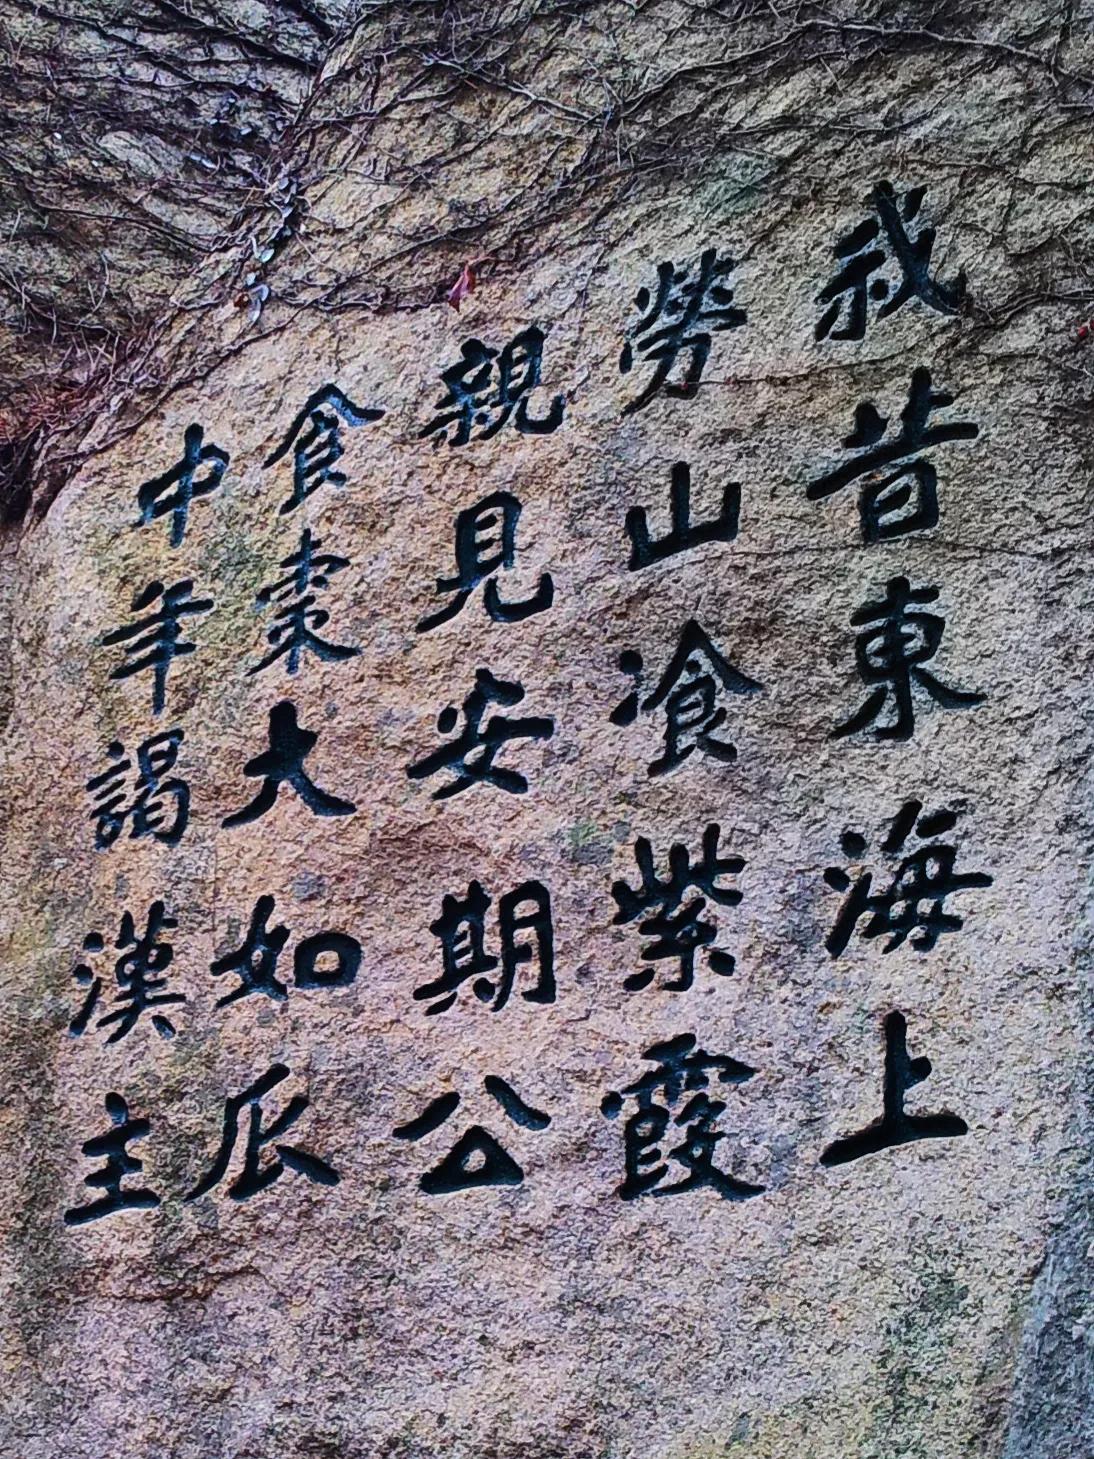 我昔東海上
勞山飡紫霞
親見安期公
食棗大如瓜
中年謁漢主